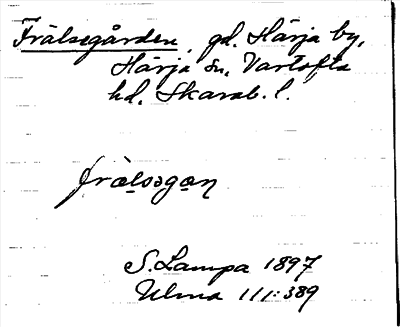 Frälsegården, gd. Härja by,
Härja sn, Vartofta
hd. Skarab. l.
fräḷsəgan
S. Lampa 1897
Ulma 111:389